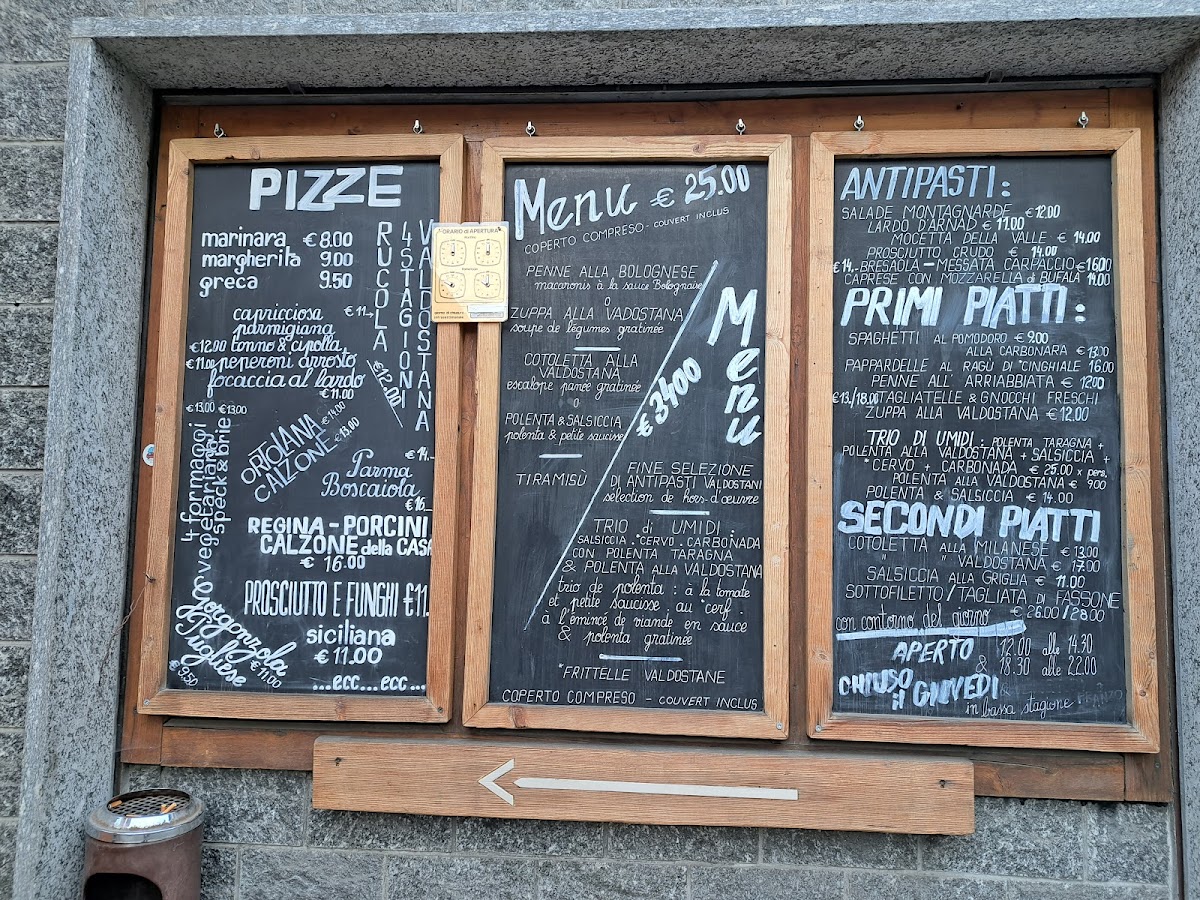 PIZZE
marinara € 8.00
margherita 9.00
greca 9.50
RUCOLA
4 STAGIONI
VALDOSTANA
€ 11
€ 12.00
capricciosa
parmigiana
€ 12.00 tonno & cipolla
€ 11.00 peperoni arrosto
focaccia al lardo
€ 11.00
€ 13.00 € 13.00
4 formaggi
vegetariana
speck & brie
ORTOLANA € 14.00
CALZONE € 13.00
€ 14.-
Parma
Boscaiola
€ 16
REGINA - PORCINI
CALZONE della CASA
€ 16.00
PROSCIUTTO E FUNGHI € 11.
Gorgonzola
€ 11.00
Pugliese
€ 9.50
siciliana
€ 11.00
...ecc...ecc...
ORARIO di APERTURA
Menu € 25.00
COPERTO COMPRESO - COUVERT INCLUS
PENNE ALLA BOLOGNESE
macaronis à la sauce Bolognaise
O
ZUPPA ALLA VALDOSTANA
soupe de légumes gratinée
COTOLETTA ALLA
VALDOSTANA
escalope panée gratinée
O
POLENTA & SALSICCIA
polenta & petite saucisse
TIRAMISÙ
Menu
€ 34.00
FINE SELEZIONE
DI ANTIPASTI VALDOSTANI
sélection de hors-d'œuvre
TRIO di UMIDI :
SALSICCIA . *CERVO . CARBONADA
CON POLENTA TARAGNA
& POLENTA ALLA VALDOSTANA
trio de polenta : à la tomate
et petite saucisse . au *cerf .
à l'émincé de viande en sauce
& polenta gratinée
*FRITTELLE VALDOSTANE
COPERTO COMPRESO - COUVERT INCLUS
ANTIPASTI :
SALADE MONTAGNARDE € 12.00
LARDO D'ARNAD € 11.00
MOCETTA DELLA VALLE € 14.00
PROSCIUTTO CRUDO € 14.00
€ 14.- BRESAOLA - MESSATA CARPACCIO € 16.00
CAPRESE CON MOZZARELLA di BUFALA 14.00
PRIMI PIATTI :
SPAGHETTI AL POMODORO € 9.00
ALLA CARBONARA € 13.00
PAPPARDELLE AL RAGÙ DI *CINGHIALE 16.00
PENNE ALL' ARRIABBIATA € 12.00
€ 13./18.00 TAGLIATELLE & GNOCCHI FRESCHI
ZUPPA ALLA VALDOSTANA € 12.00
TRIO DI UMIDI : POLENTA TARAGNA +
POLENTA ALLA VALDOSTANA + SALSICCIA +
*CERVO + CARBONADA € 25.00 x pers.
POLENTA ALLA VALDOSTANA € 9.00
POLENTA & SALSICCIA € 14.00
SECONDI PIATTI
COTOLETTA ALLA MILANESE € 13.00
" " VALDOSTANA € 17.00
SALSICCIA ALLA GRIGLIA € 11.00
SOTTOFILETTO / TAGLIATA DI FASSONE
€ 26.00 / 28.00
con contorno del giorno
APERTO 12.00 alle 14.30
& 18.30 alle 22.00
CHIUSO
il GIOVEDI
in bassa stagione